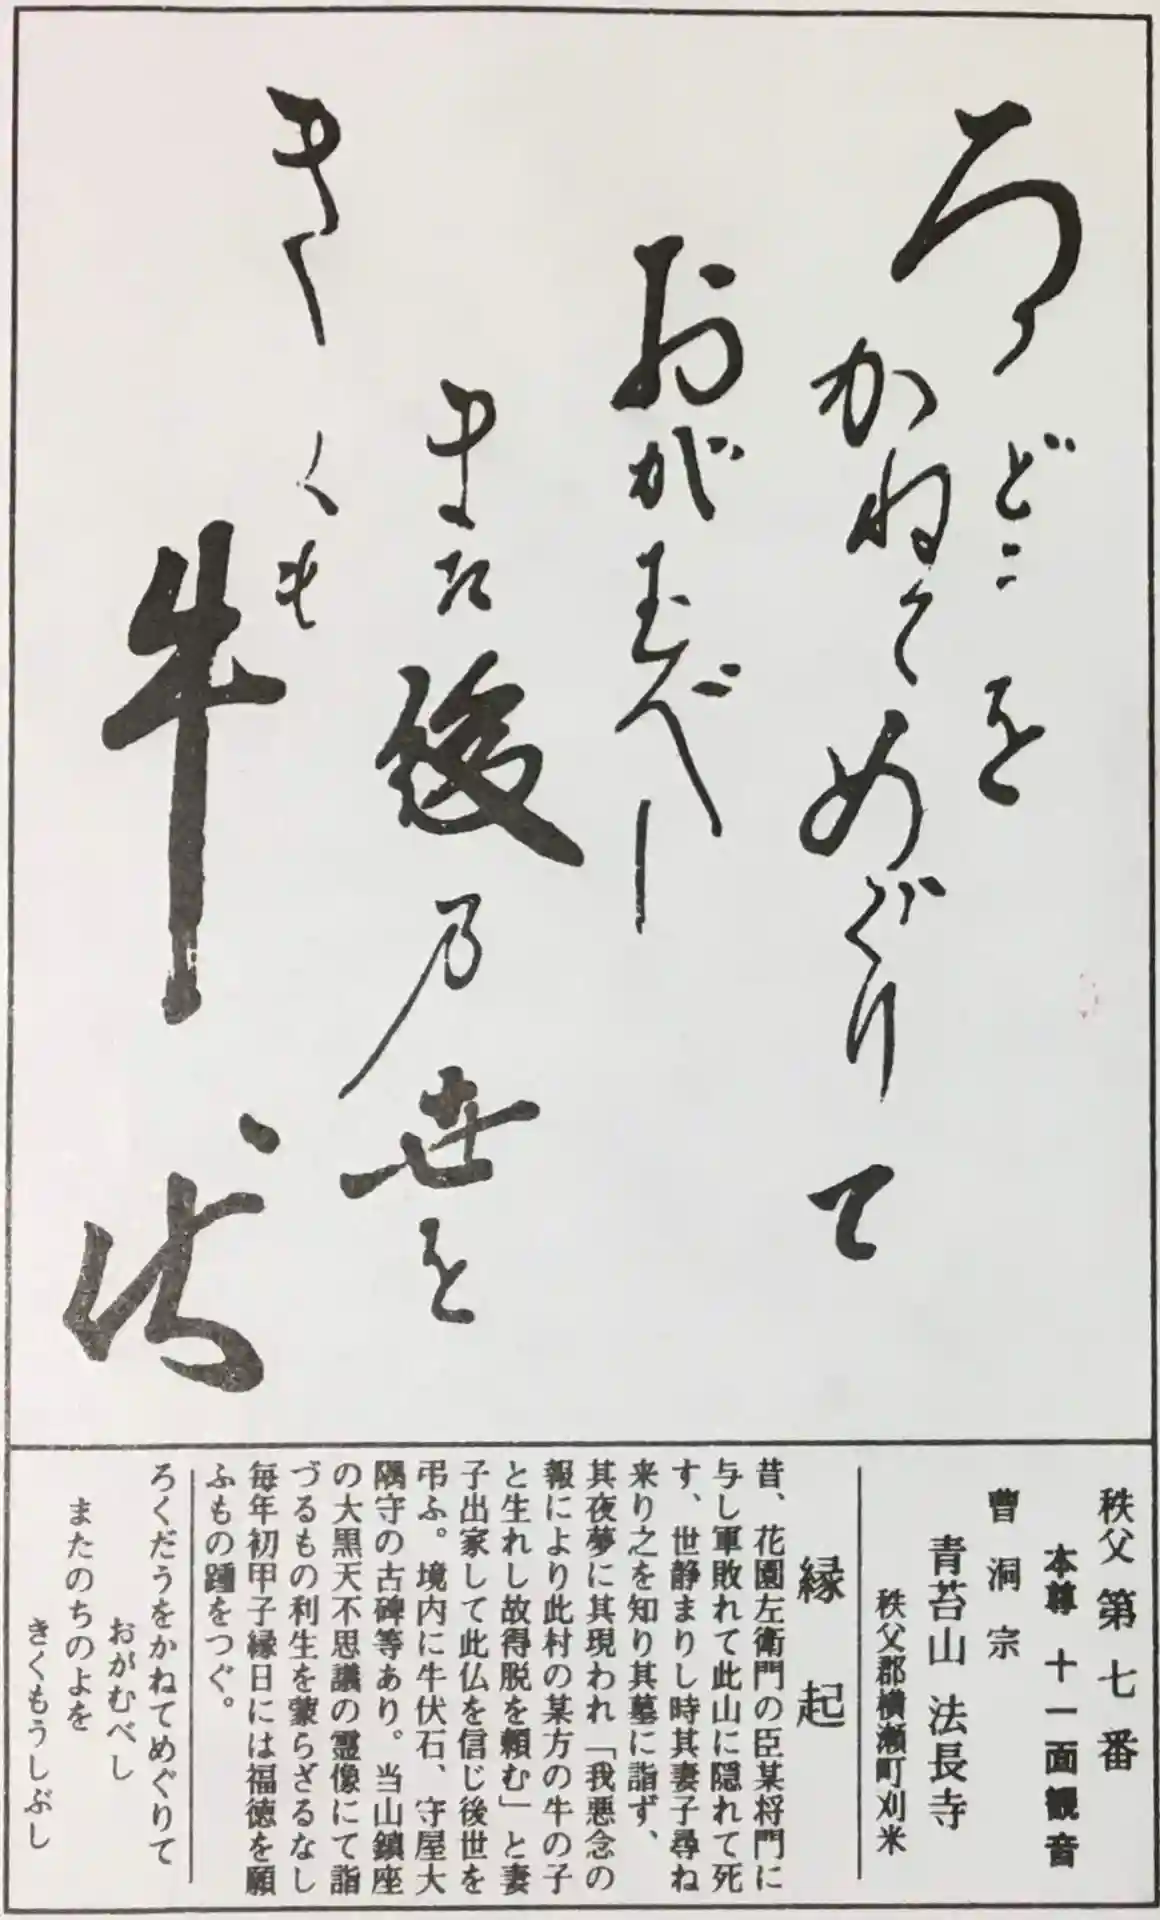 ろくどうを
かねてめぐりて
おがむべし
また後乃世を
きくも
牛伏
秩父第七番
本尊 十一面観音
曹洞宗
青苔山 法長寺
秩父郡横瀬町刈米
縁起
昔、花園左衛門の臣某将門に
与し軍敗れて此山に隠れて死
す、世静まりし時其妻子尋ね
来り之を知り其墓に詣ず、
其夜夢に其現われ「我悪念の
報により此村の某方の牛の子
と生れし故得脱を頼む」と妻
子出家して此仏を信じ後世を
弔ふ。境内に牛伏石、守屋大
隅守の古碑等あり。当山鎮座
の大黒天不思議の霊像にて詣
づるもの利生を蒙らざるなし
毎年初甲子縁日には福徳を願
ふもの踵をつぐ。
ろくだうをかねてめぐりて
おがむべし
またのちのよを
きくもうしぶし